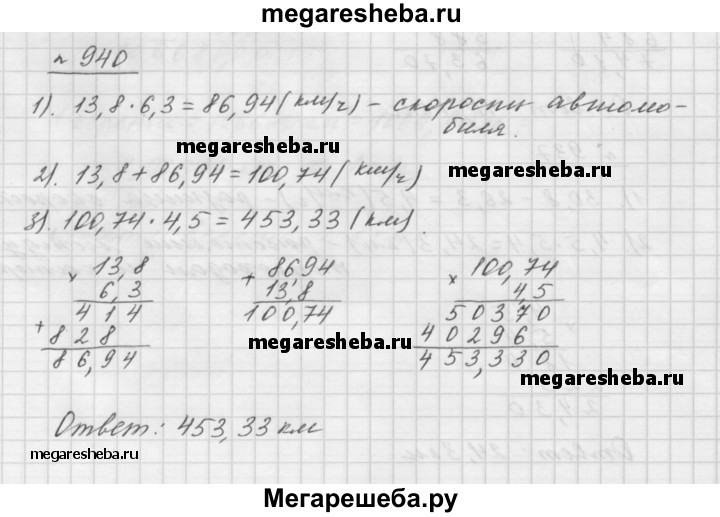 megaresheba.ru
№ 940
1). 13,8 · 6,3 = 86,94 (км/ч) – скорость автомо-
биля.
megaresheba.ru
megaresheba.ru
2). 13,8 + 86,94 = 100,74 (км/ч)
megaresheba.ru
3). 100,74 · 4,5 = 453,33 (км).
× 13,8
6,3
4 1 4
+ 8 2 8
8 6, 9 4
+ 86,94
13,8
100,74
× 100,74
4,5
5 0 3 7 0
4 0 2 9 6
4 5 3, 3 3 0
megaresheba.ru
megaresheba.ru
Ответ: 453,33 км
megaresheba.ru
megaresheba.ru
Мегарешеба.ру